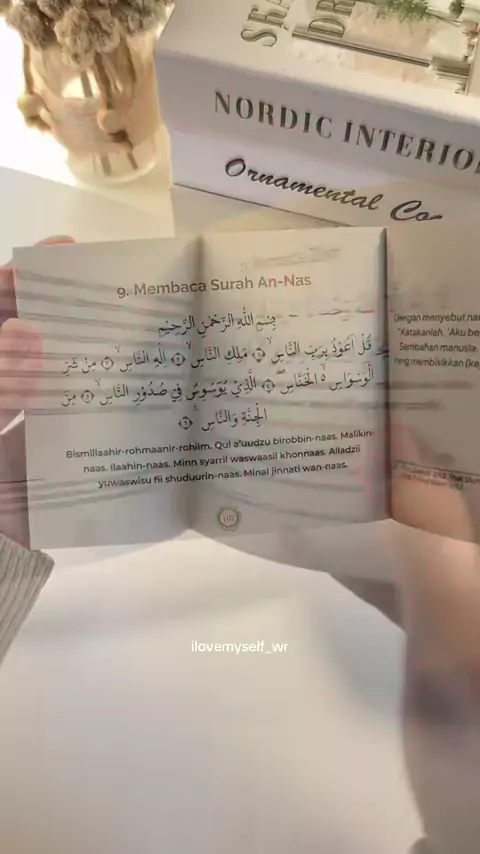 NORDIC INTERIO
Ornamental Co
9. Membaca Surah An-Nas
بِسْمِ اللّٰهِ الرَّحْمٰنِ الرَّحِيْمِ
قُلْ اَعُوْذُ بِرَبِّ النَّاسِۙ ﴿١﴾ مَلِكِ النَّاسِۙ ﴿٢﴾ اِلٰهِ النَّاسِۙ ﴿٣﴾ مِنْ شَرِّ
الْوَسْوَاسِ ەۙ الْخَنَّاسِۖ ﴿٤﴾ الَّذِيْ يُوَسْوِسُ فِيْ صُدُوْرِ النَّاسِۙ ﴿٥﴾ مِنَ
الْجِنَّةِ وَالنَّاسِ ﴿٦﴾
Bismillaahir-rohmaanir-rohiim. Qul a'uudzu birobbin-naas. Malikin-
naas. Ilaahin-naas. Minn syarril waswaasil khonnaas. Alladzii
yuwaswisu fii shuduurin-naas. Minal jinnati wan-naas.
Dengan menyebut na
"Katakanlah, 'Aku be
Sembahan manusia.
yang membisikkan (ke
ilovemyself_wr